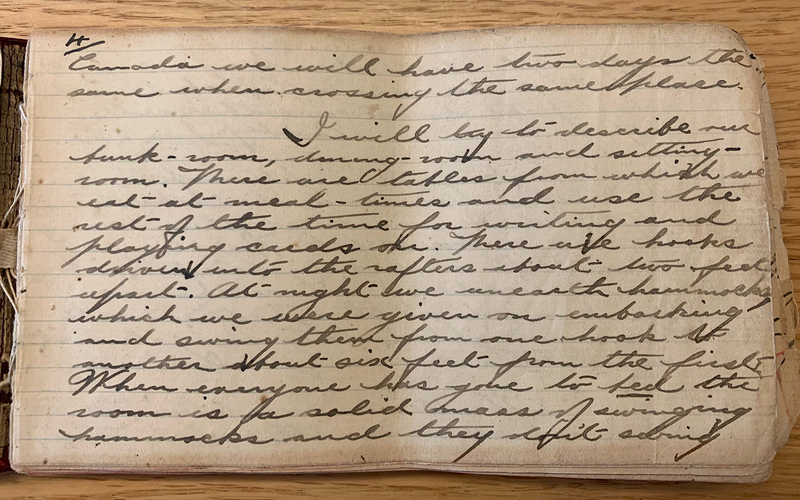 4
Canada we will have two days the
same when crossing the same place.
I will try to describe our
bunk-room, dining-room and sitting-
room. There are tables from which we
eat at meal-times and use the
rest of the time for writing and
playing cards on. There are hooks
driven into the rafters about two feet
apart. At night we unearth hammocks
which we were given on embarking
and swing them from one hook to
another about six feet from the first.
When everyone has gone to bed the
room is a solid mass of swinging
hammocks and they don't swing